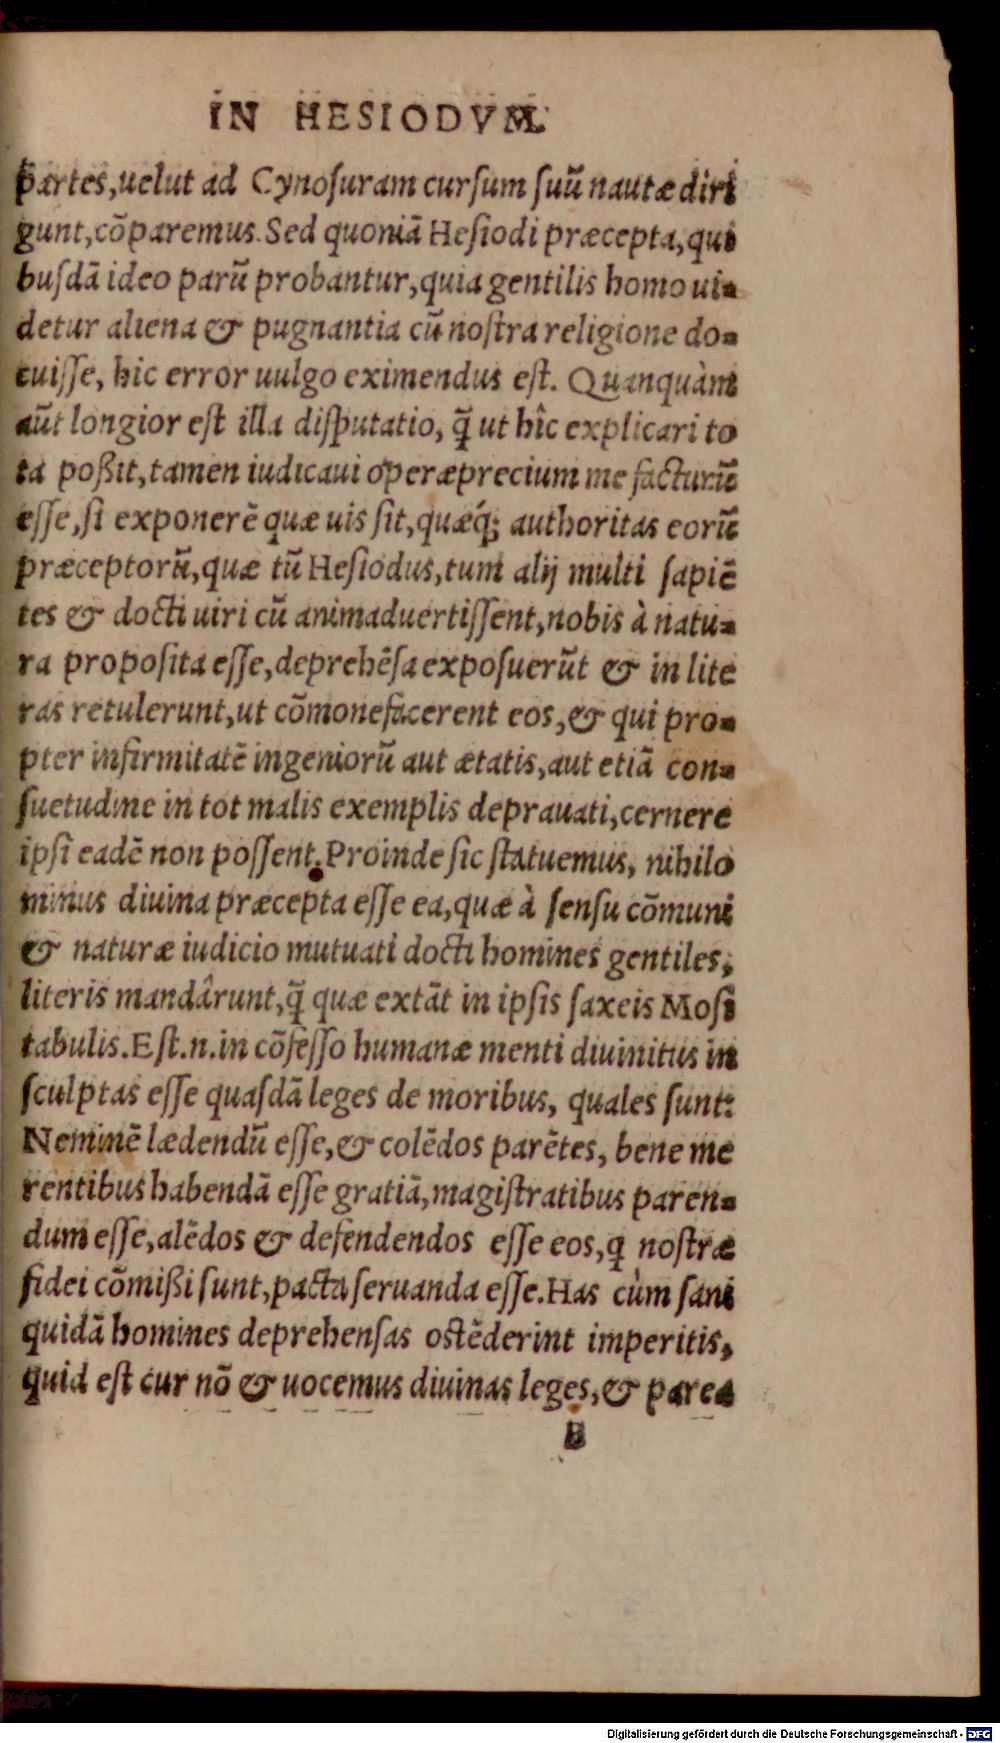 IN HESIODVM.
partes,uelut ad Cynoſuram curſum ſuū nautæ diri
gunt,cōparemus. Sed quoniā Heſiodi præcepta,qui
buſdā ideo parū probantur,quia gentilis homo ui-
detur aliena & pugnantia cū noſtra religione do-
cuiſſe, hic error uulgo eximendus eſt. Quanquàm
aūt longior eſt illa diſputatio, q̃ ut hîc explicari to
ta poßit,tamen iudicaui operæprecium me facturū
eſſe,ſi exponerē quæ uis ſit,quæq́; authoritas eorū
præceptorū,quæ tū Heſiodus,tum alij multi ſapiē
tes & docti uiri cū animaduertiſſent,nobis à natu-
ra propoſita eſſe,deprehēſa expoſuerūt & in lite
ras retulerunt,ut cōmonefacerent eos,& qui pro-
pter infirmitatē ingeniorū aut ætatis,aut etiā con-
ſuetudine in tot malis exemplis deprauati,cernere
ipſi eadē non poſſent. Proinde ſic ſtatuemus, nihilo
minus diuina præcepta eſſe ea,quæ à ſenſu cōmuni
& naturæ iudicio mutuati docti homines gentiles,
literis mandârunt,q̃ quæ extāt in ipſis ſaxeis Moſi
tabulis.Eſt.n.in cōfeſſo humanæ menti diuinitus in
ſculptas eſſe quaſdā leges de moribus, quales ſunt:
Neminē lædendū eſſe,& colēdos parētes, bene me
rentibus habendā eſſe gratiā,magiſtratibus paren-
dum eſſe,alēdos & defendendos eſſe eos,q noſtræ
fidei cōmißi ſunt,pacta ſeruanda eſſe.Has cùm ſani
quidā homines deprehenſas oſtēderint imperitis,
quid eſt cur nō & uocemus diuinas leges,& parea
B
Digitalisierung gefördert durch die Deutsche Forschungsgemeinschaft - DFG